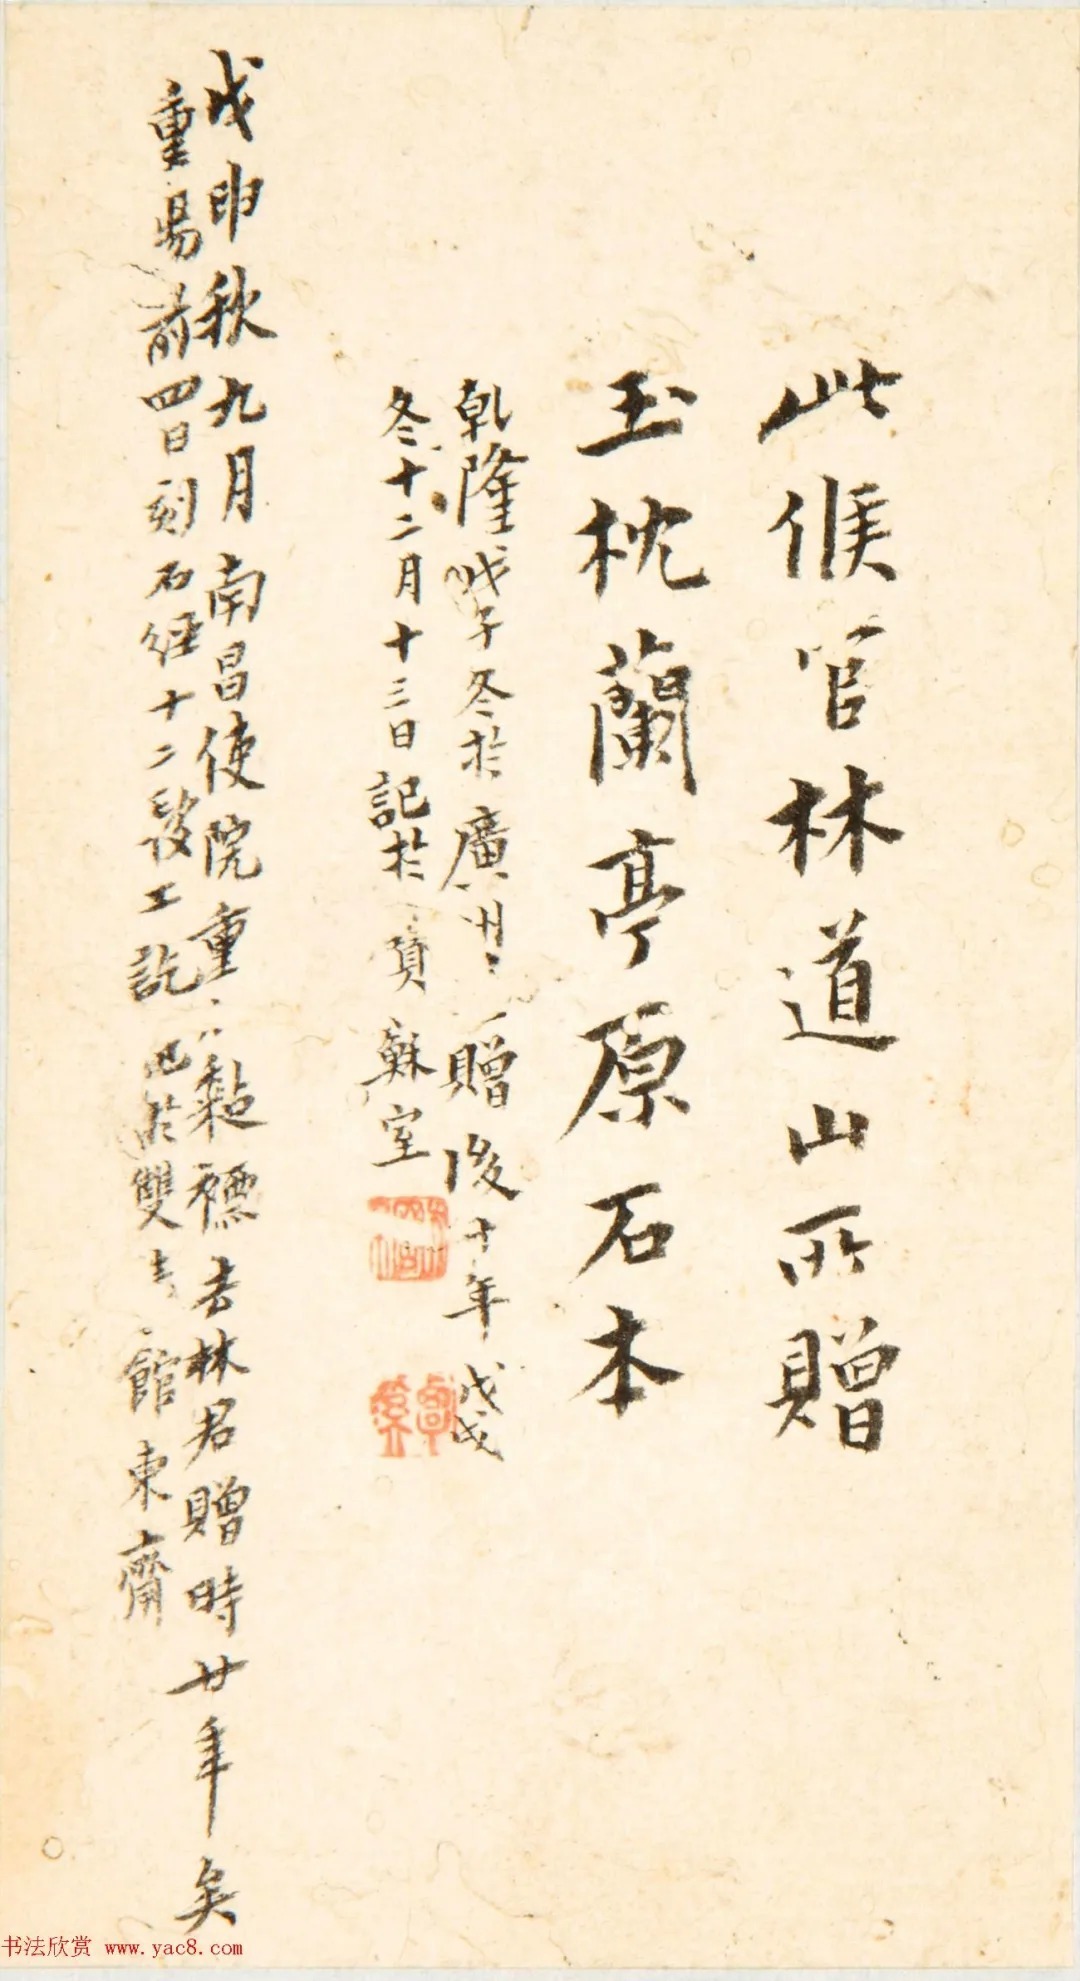 此候官林道山所贈
玉枕蘭亭原石本
乾隆戊子冬於廣州贈後十年戊戌
冬十二月十三日記於寶蘇室
戊申秋九月南昌使院重黏裱去林君贈時廿年矣
重昜前四日刻石經十二段工訖記於雙館東齋
书法欣赏 www.yac8.com